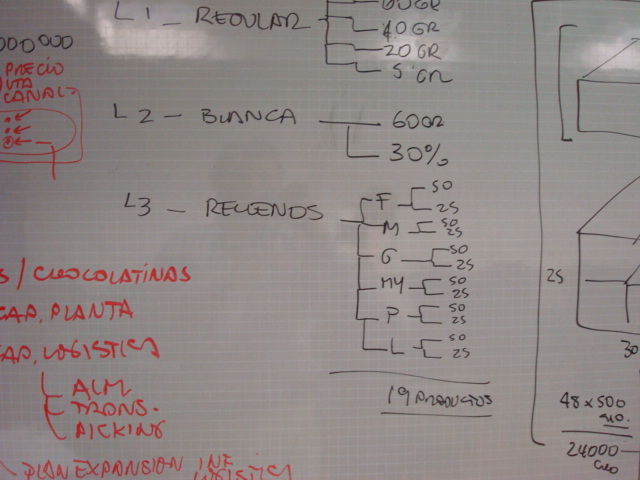 L1 - REGULAR
60GR
40GR
20 GR
5 GR
000 000
PRECIO
CANAL
L2 - BLANCA
60GR
30%
L3 - RELLENOS
F 50 25
M 50 25
G 50 25
MY 50 25
P 50 25
L 50 25
19 PRODUCTOS
S / CHOCOLATINAS
CAP. PLANTA
CAP. LOGISTICA
ALM
TRANS.
PICKING
PLAN EXPANSION INF LOGISTICA
25
30
48 x 500
24000